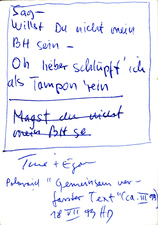 Sag –
Willst Du nicht mein
BH sein –
Oh lieber schlüpft' ich
als Tampon 'rein
Magst du nicht
mein BH se
+ Egon
"Gemeinsam ver-
fasster Text" (ca. III 99)
18 VII 99 HD